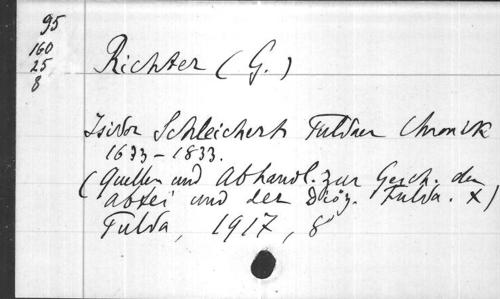 95
160
25
8
Richter (G.)
Isidor Schleicherts Fuldaer Chronik
1633-1833.
(Quellen und Abhandl. zur Gesch. der
Abtei und der Diöz. Fulda. X)
Fulda, 1917, 8